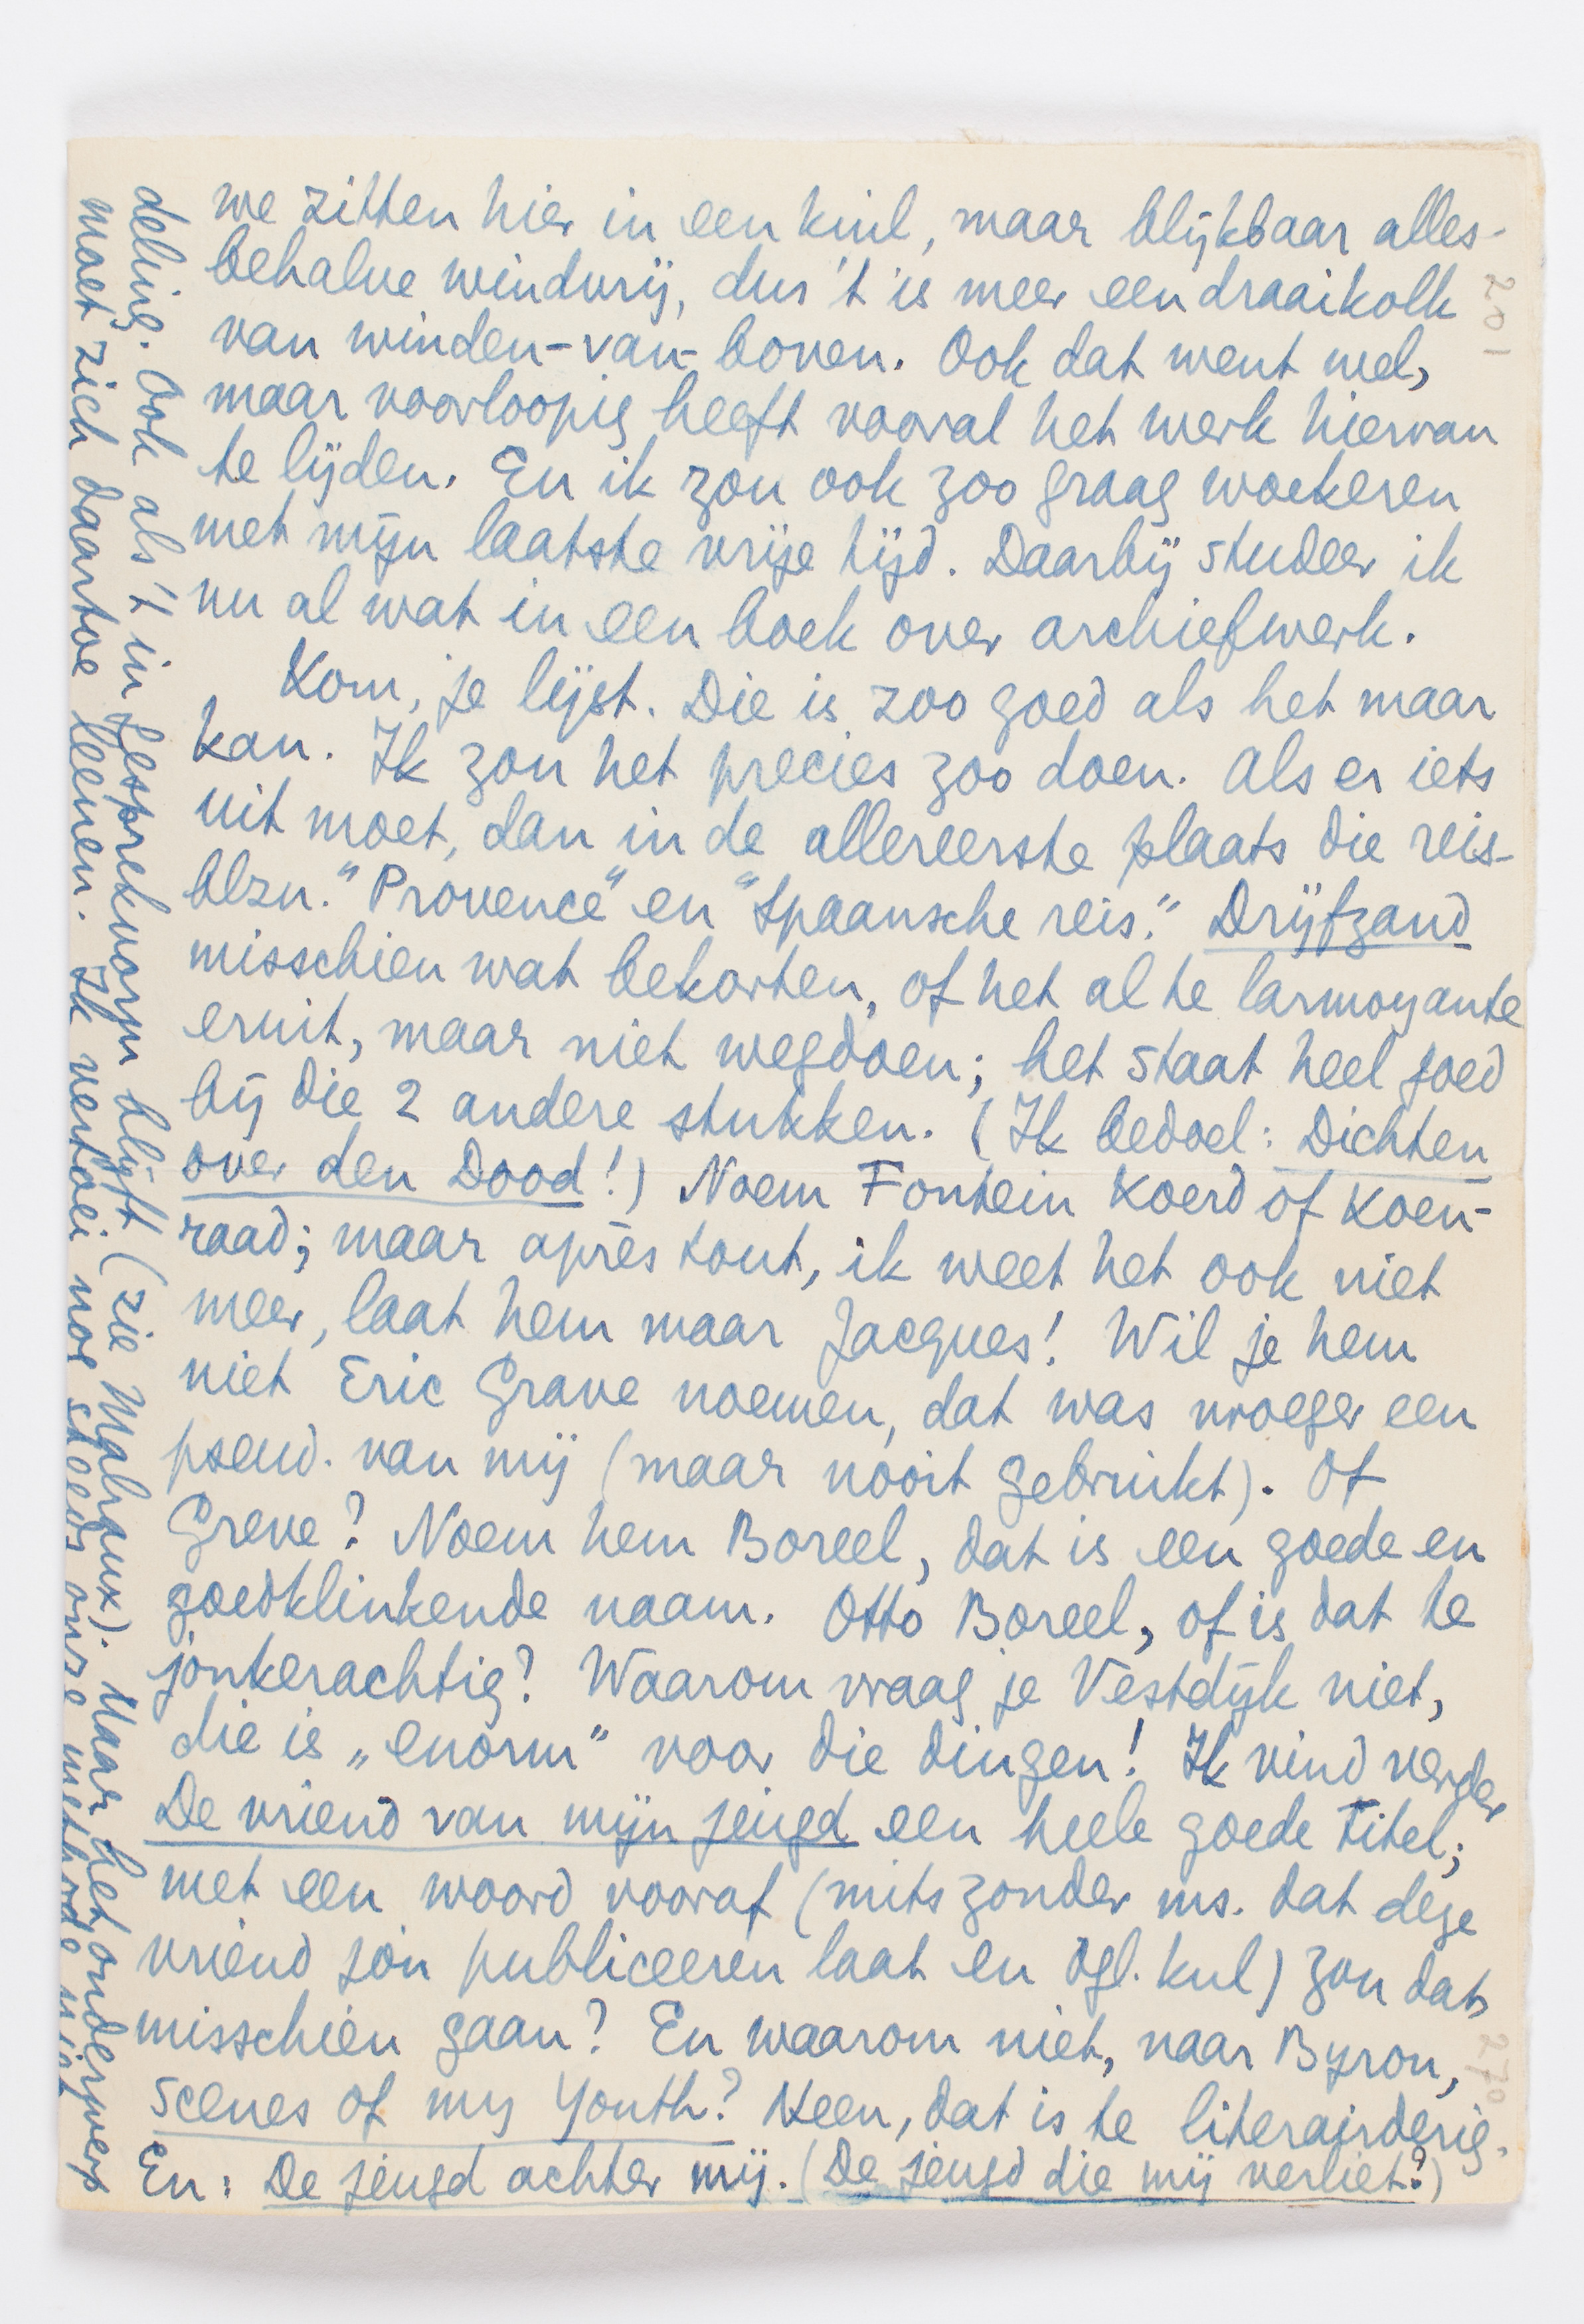 we zitten hier in een kuil, maar blijkbaar alles-
behalve windvrij, dus 't is meer een draaikolk
van winden-van-boven. Ook dat went wel,
maar voorloopig heeft vooral het werk hiervan
te lijden. En ik zou ook zoo graag woekeren
met mijn laatste vrije tijd. Daarbij studeer ik
nu al wat in een boek over archiefwerk.
Kom, je lijst. Die is zoo goed als het maar
kan. Ik zou het precies zoo doen. Als er iets
uit moet, dan in de allereerste plaats die reis-
blzn. "Provence" en "Spaansche reis." Drijfzand
misschien wat bekorten, of het al te larmoyante
eruit, maar niet wegdoen; het staat heel goed
bij die 2 andere stukken. (Ik bedoel: Dichten
over den Dood!) Noem Fontein Koerd of Koen-
raad; maar après tout, ik weet het ook niet
meer, laat hem maar Jacques! Wil je hem
niet Eric Grave noemen, dat was vroeger een
pseud. van mij (maar nooit gebruikt). Of
Greve? Noem hem Boreel, dat is een goede en
goedklinkende naam. Otto Boreel, of is dat te
jonkerachtig? Waarom vraag je Vestdijk niet,
die is „enorm” voor die dingen! Ik vind verder
De vriend van mijn jeugd een heele goede titel;
met een woord vooraf (mits zonder ms. dat deze
vriend jòu publiceeren laat en dgl. kul) zou dat
misschien gaan? En waarom niet, naar Byron,
Scenes of my Youth? Neen, dat is te literairderig.
En: De jeugd achter mij. (De jeugd die mij verliet?)
deling. Ook als 't in gesprekvorm blijft (zie Malraux). Maar het onderwerp
moet zich daartoe leenen. Ik vertaei nog steeds onze methode niet
201
270